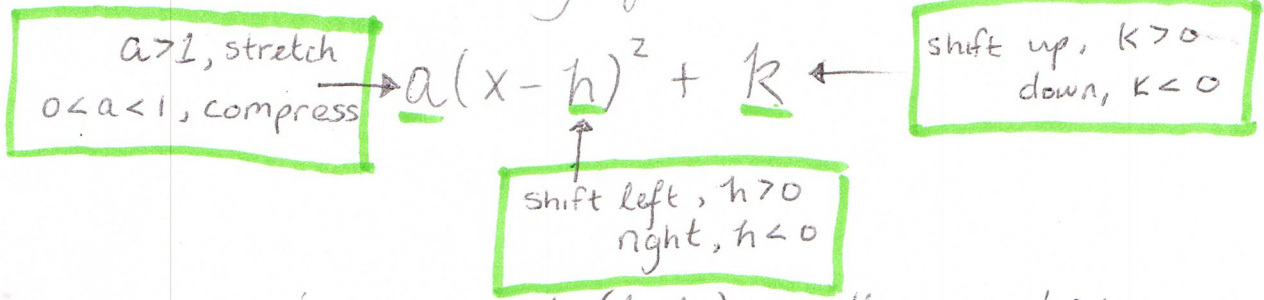 a>1, stretch
0<a<1, compress
a(x-h)² + k
shift up, k>0
down, k<0
shift left, h>0
right, h<0